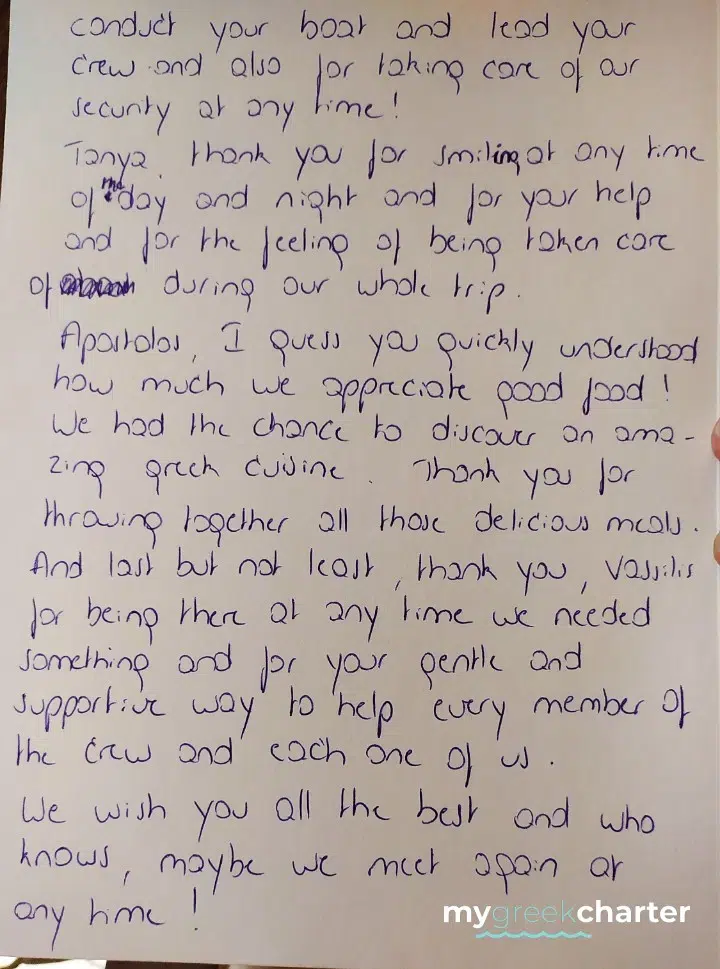 conduct your boat and lead your
crew and also for taking care of our
security at any time!
Tanya, thank you for smiling at any time
of the day and night and for your help
and for the feeling of being taken care
of during our whole trip.
Apostolos, I guess you quickly understood
how much we appreciate good food!
We had the chance to discover an ama-
zing greek cuisine. Thank you for
throwing together all those delicious meals.
And last but not least, thank you, Vassilis
for being there at any time we needed
something and for your gentle and
supportive way to help every member of
the crew and each one of us.
We wish you all the best and who
knows, maybe we meet again at
any time!
mygreekcharter